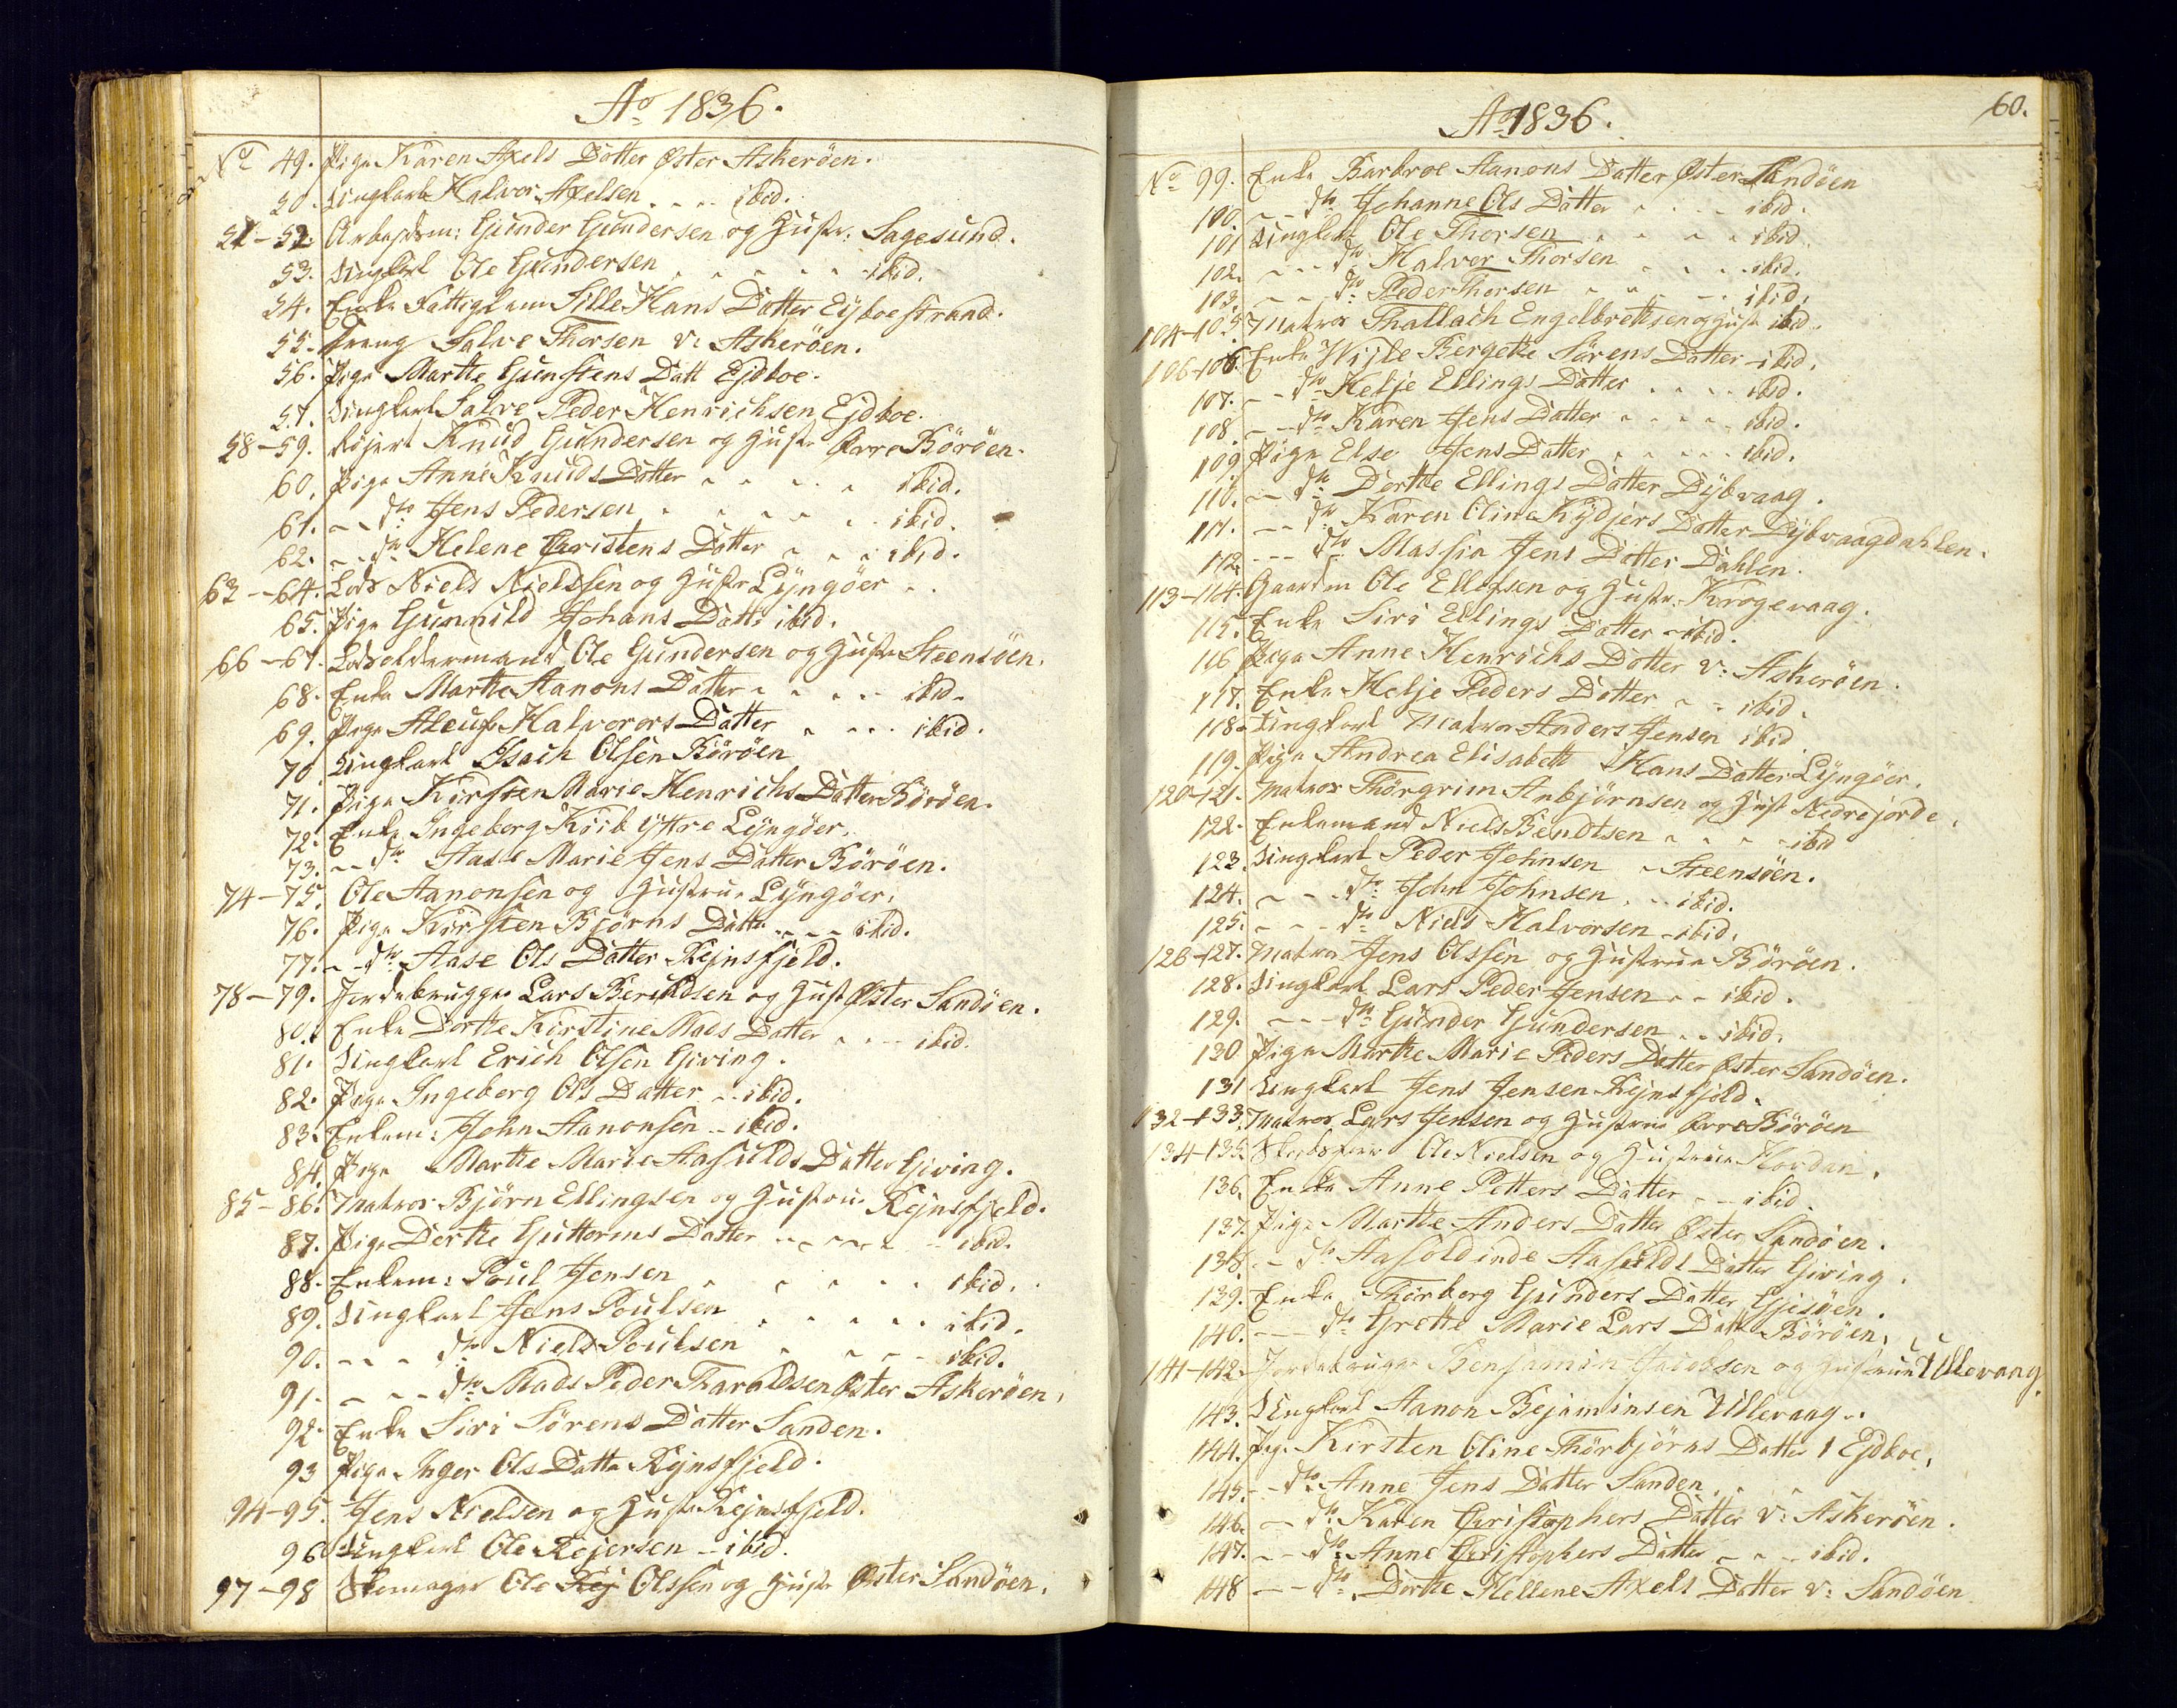 Ao 1836.
No 49. Pige Karen Axels Datter Øster Askerøen.
50. Ungkarl Halvor Axelsen . . . . ibid.
51-52. Arbejdsm: Gunder Gundersen og Hustr: Sagesund.
53. Ungkarl Ole Gundersen . . . . . ibid.
54. Enke Fattiglem Sille Hans Datter Eijdboestrand.
55. Dreng Salve Thorsen v: Askerøen.
56. Pige Marthe Gunstens Datt Ejdboe.
57. Ungkarl Salve Peder Henrichsen Ejdboe.
58-59. Rejert Knud Gundersen og Hustr Øvre Börøen.
60. Pige Anne Knuds Datter . . . . ibid.
61. - - dto Jens Pedersen . . . . . ibid.
62. - - dto Helene Christens Datter . . . ibid.
63-64. Lods Niels Nielssen og Hustr Lyngøer . .
65. Pige Gunnild Johans Datt: ibid.
66-67. Lodsoldermand Ole Gundersen og Hustr Steensøen.
68. Enke Marthe Aanons Datter . . . . ibid.
69. Pige Aleuf Halvorors Datter . . . . ibid.
70 Ungkarl Isach Olsen Börøen
71. Pige Kirsten Marie Henrichs Datter Börøen.
72. Enke Ingeborg Koib Yttre Lyngøer.
73. - - dto Aase Marie Jens Datter Börøen.
74-75. Ole Aanonsen og Hustrue Lyngøer.
76. Pige Kirsten Bjørns Datter . . . ibid.
77. - - dto Aase Ols Datter Rejnsfjeld.
78-79. Jordebrugger Lars Berildsen og Hust Øster Sandøen.
80. Enke Dorthe Kirstine Mads Datter . . . ibid.
81. Ungkarl Erich Olsen Giving.
82. Pige Ingeborg Ols Datter . . ibid.
83. Enkem: John Aanonsen . . ibid.
84. Pige Marthe Marie Aasulds Datter Giving.
85-86. Matros Bjørn Ellingsen og Hustru Rejnsfjeld.
87. Pige Dorthe Guttorms Datter . . . . . ibid.
88. Enkem: Poul Jensen . . . . . ibid.
89. Ungkarl Jens Poulsen . . . . . ibid.
90. - - - dto Niels Poulsen . . . . ibid.
91. - - - dto Mads Peder Tharaldsen Øster Askerøen.
92. Enke Siri Sørens Datter Sanden.
93 Pige Inger Ols Datter Rejnsfjeld.
94-95. Jens Nielsen og Hustr Rejnsfjeld.
96 Ungkarl Ole Rejersen . . ibid.
97-98 Skomager Ole Rej Olssen og Hustr Øster Sandøen.
60.
Ao 1836.
No 99. Enke Barbroe Aanons Datter Øster Sandøen
100. - - dto Johanne Ols Datter . . . . ibid.
101 Ungkarl Ole Thorsen . . . . ibid.
102. - - - dto Halvor Thorsen . . . . ibid.
103. - - dto Peder Thorsen . . . . ibid.
104-105. Matros Thallach Engelbrethsen og Hustr ibid.
106-106. Enke Wijle Bergethe Sørens Datter - ibid.
107. - - dto Helje Ellings Datter . . . . ibid.
108. - - dto Karen Jens Datter . . . . ibid.
109 Pige Else Jens Datter . . . . ibid.
110. - - dto Dorthe Ellings Datter Dybvaag.
111. - - dto Karen Oline Kydjers Datter Dybvaagdahlen.
112. - - - dto Massia Jens Datter Dahlen.
113-114. Gaardm Ole Ellefsen og Hustr. Krogevaag.
115. Enke Siri Ellings Datter - ibid.
116 Pige Anne Henrichs Datter v: Askerøen.
117. Enke Helje Peders Datter . . ibid.
118. Ungkarl Matros Anders Jensen ibid
119. Pige Andrea Elisabett Hans Datter Lyngøer.
120-121. Matros Thorgrim Anbjørnsen og Hust Nedrejorde.
122. Enkemand Niels Bendtsen . . . . ibid
123. Ungkarl Peder Johnsen - Steensøen.
124. - - - dto John Johnsen . . . ibid.
125. - - - dto Niels Halvorsen - ibid.
126-127. Matros Jens Olssen og Hustrue Börøen.
128. Ungkarl Lars Peder Jensen . . ibid.
129. - - - dto Gunder Gundersen . . ibid.
130 Pige Marthe Marie Peders Datter Øster Sandøen.
131 Ungkarl Jens Jensen Rejnsfjeld.
132-133. Matros Lars Jensen og Hustrue Øvre Börøen
134-135. Ole Nielsen og Hustrue Hordan.
136. Enke Anne Petters Datter . . ibid.
137. Pige Marthe Anders Datter Øster Sandøen.
138. - - dto Aasoldinde Aasulds Datter Giving.
139. Enke Thorberg Gunders Datter Gjesøen.
140. - - - dto Grethe Marie Lars Datt Börøen.
141-142. Jordebruger Benjamin Jacobsen og Hustrue Ullevaag
143. Ungkarl Aanon Bejaminsen Ullevaag.
144. Pige Kirsten Oline Thorbjørns Datter i Ejdboe.
145. - dto Anne Jens Datter Sanden . . .
146. - dto Karen Christophers Datter v: Askerøen.
147. - - dto Anne Christophers Datter . . . ibid.
148 - - dto Dorthe Hellene Axels Datter v: Sandøen